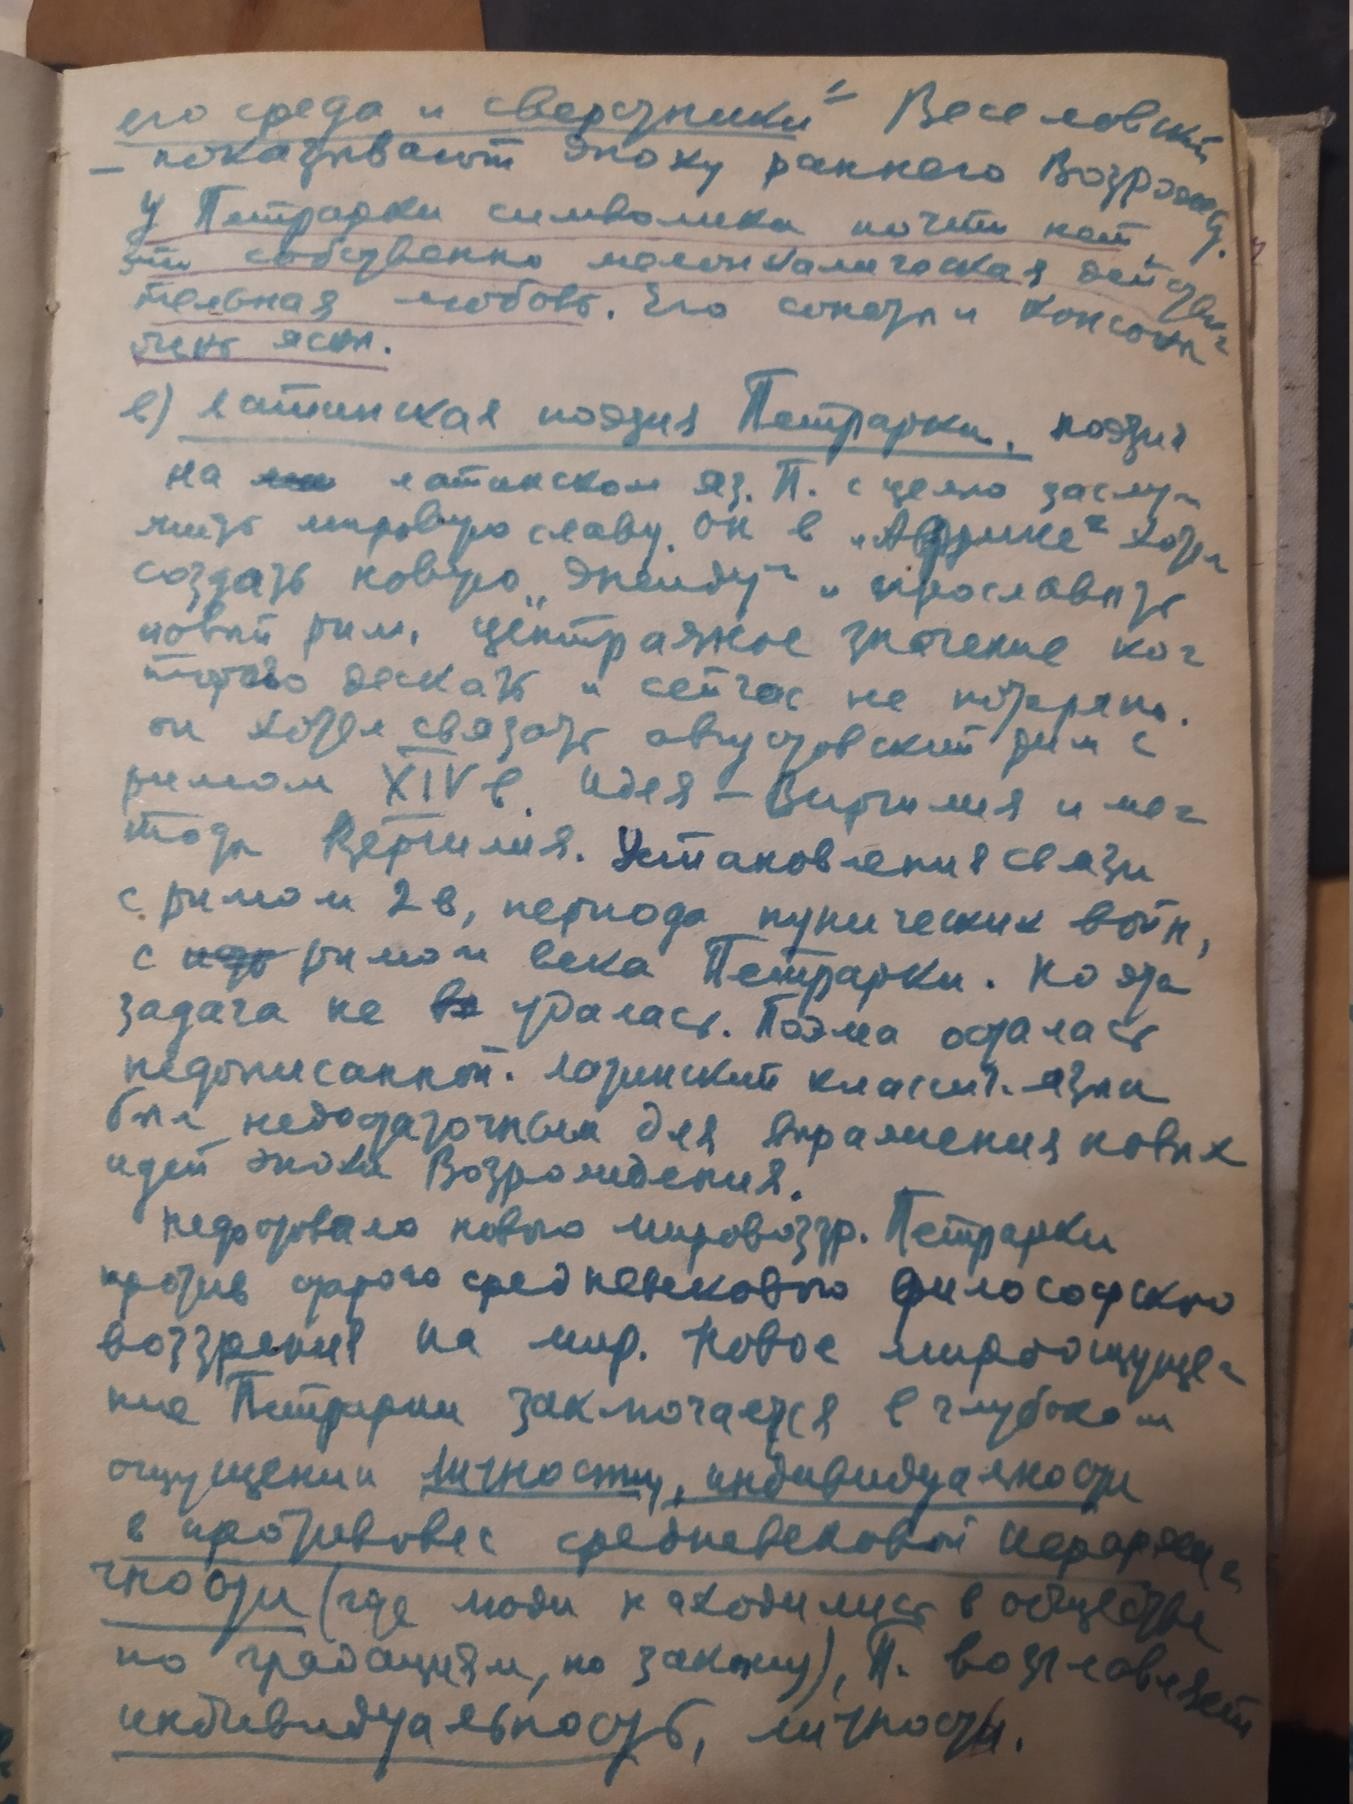 его среда и сверстники“ Веселовский
– показывают эпоху раннего Возрожд.
У Петрарки символики почти нет,
это собственно меланхолическая действи-
тельная любовь. Его сонеты и консоны
очень ясны.
в) латинская поэзия Петрарки. поэзия
на латинском яз. П. с целью заслу-
жить мировую славу. Он в „Африке“ хотел
создать новую „Энеиду“ и прославить
новый рим, центральное значение ко-
торого дескать и сейчас не потеряно.
он хотел связать августовский рим с
римом XIV в. идея – Виргилия и ме-
тоды Вергилия. Установления связи
с римом 2 в, периода пунических войн,
с римом века Петрарки. Но эта
задача не удалась. Поэма осталась
недописанной. латинский классич. язык
был недостаточным для выражения новых
идей эпохи Возрождения.
недоставало нового мировоззр. Петрарки
против старого средневекового философского
воззрения на мир. Новое мироощуще-
ние Петрарки заключается в глубоком
ощущении личности, индивидуальности
в противовес средневековой иерархи-
чности (где люди находились в обществе
по градациям, по закону), П. возглавляет
индивидуальность, личность.